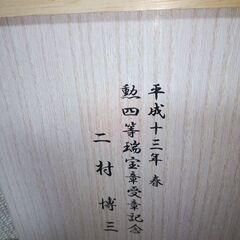 平成十三年 春
勲四等瑞宝章受章記念
二村博三